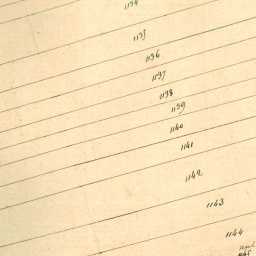 1134
1135
1136
1137
1138
1139
1140
1141
1142
1143
1144